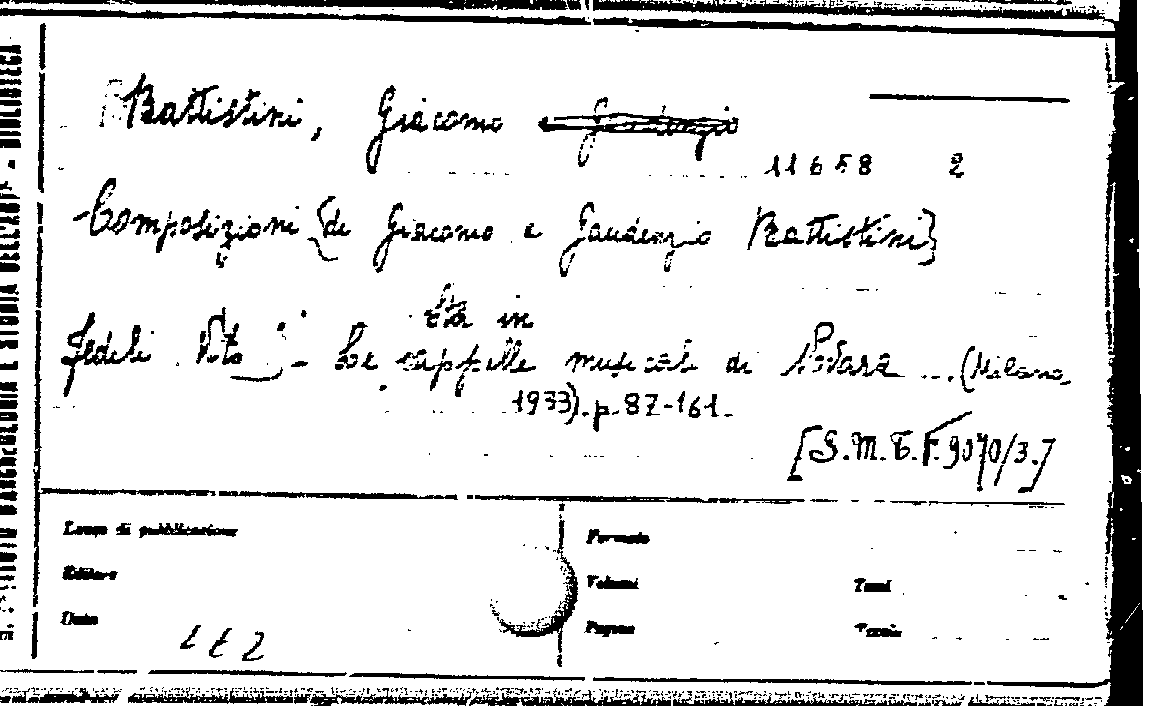 Battistini, Giacomo e Gaudenzio
11658 2
Composizioni {di Giacomo e Gaudenzio Battistini}
Sta in
Fedeli Vito - Le cappelle musicali di Novara ... (Milano
1933). p. 87-161.
[S.M.T.F. 9070/3.]
Luogo di pubblicazione
Editore
Data
Formato
Volumi
Pagine
Tomi
Tavole
R. ISTITUTO D'ARCHEOLOGIA E STORIA DELL'ARTE - BIBLIOTECA